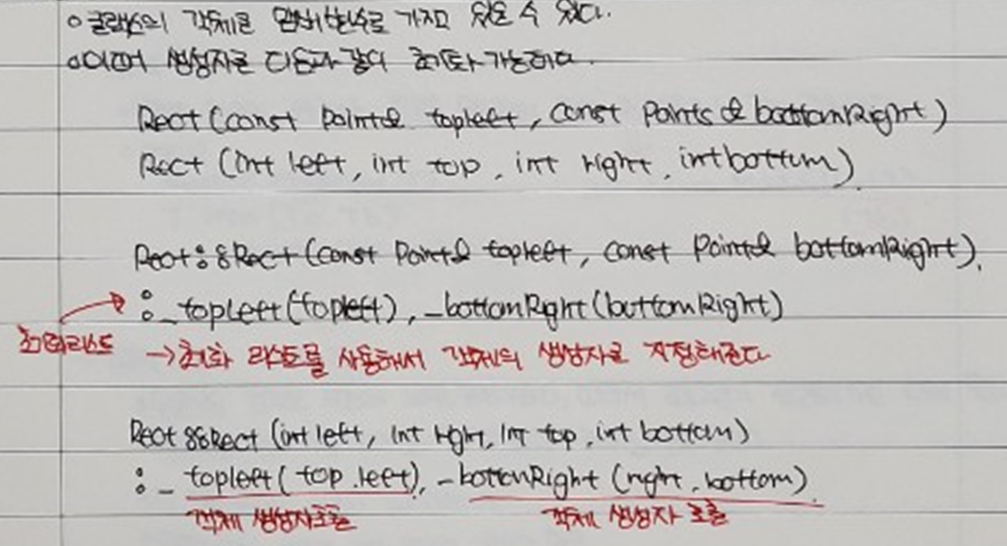 o 클래스의 객체를 멤버변수로 가지고 있을 수 있다.
o 이때 생성자로 다음과 같이 초기화 가능하다.
Rect (const Point& topleft, const Points & bottomRight)
Rect (int left, int top, int right, int bottom)
Rect::Rect (const Point& topleft, const Point& bottomRight).
: _topLeft (topleft), _bottomRight (buttomRight)
초기화리스트
→ 초기화 리스트를 사용해서 객체의 생성자로 지정해준다
Rect::Rect (int left, int right, int top, int bottom)
: _topleft( top.left), _bottonRight (right, bottom)
객체 생성자호출 객체 생성자 호출